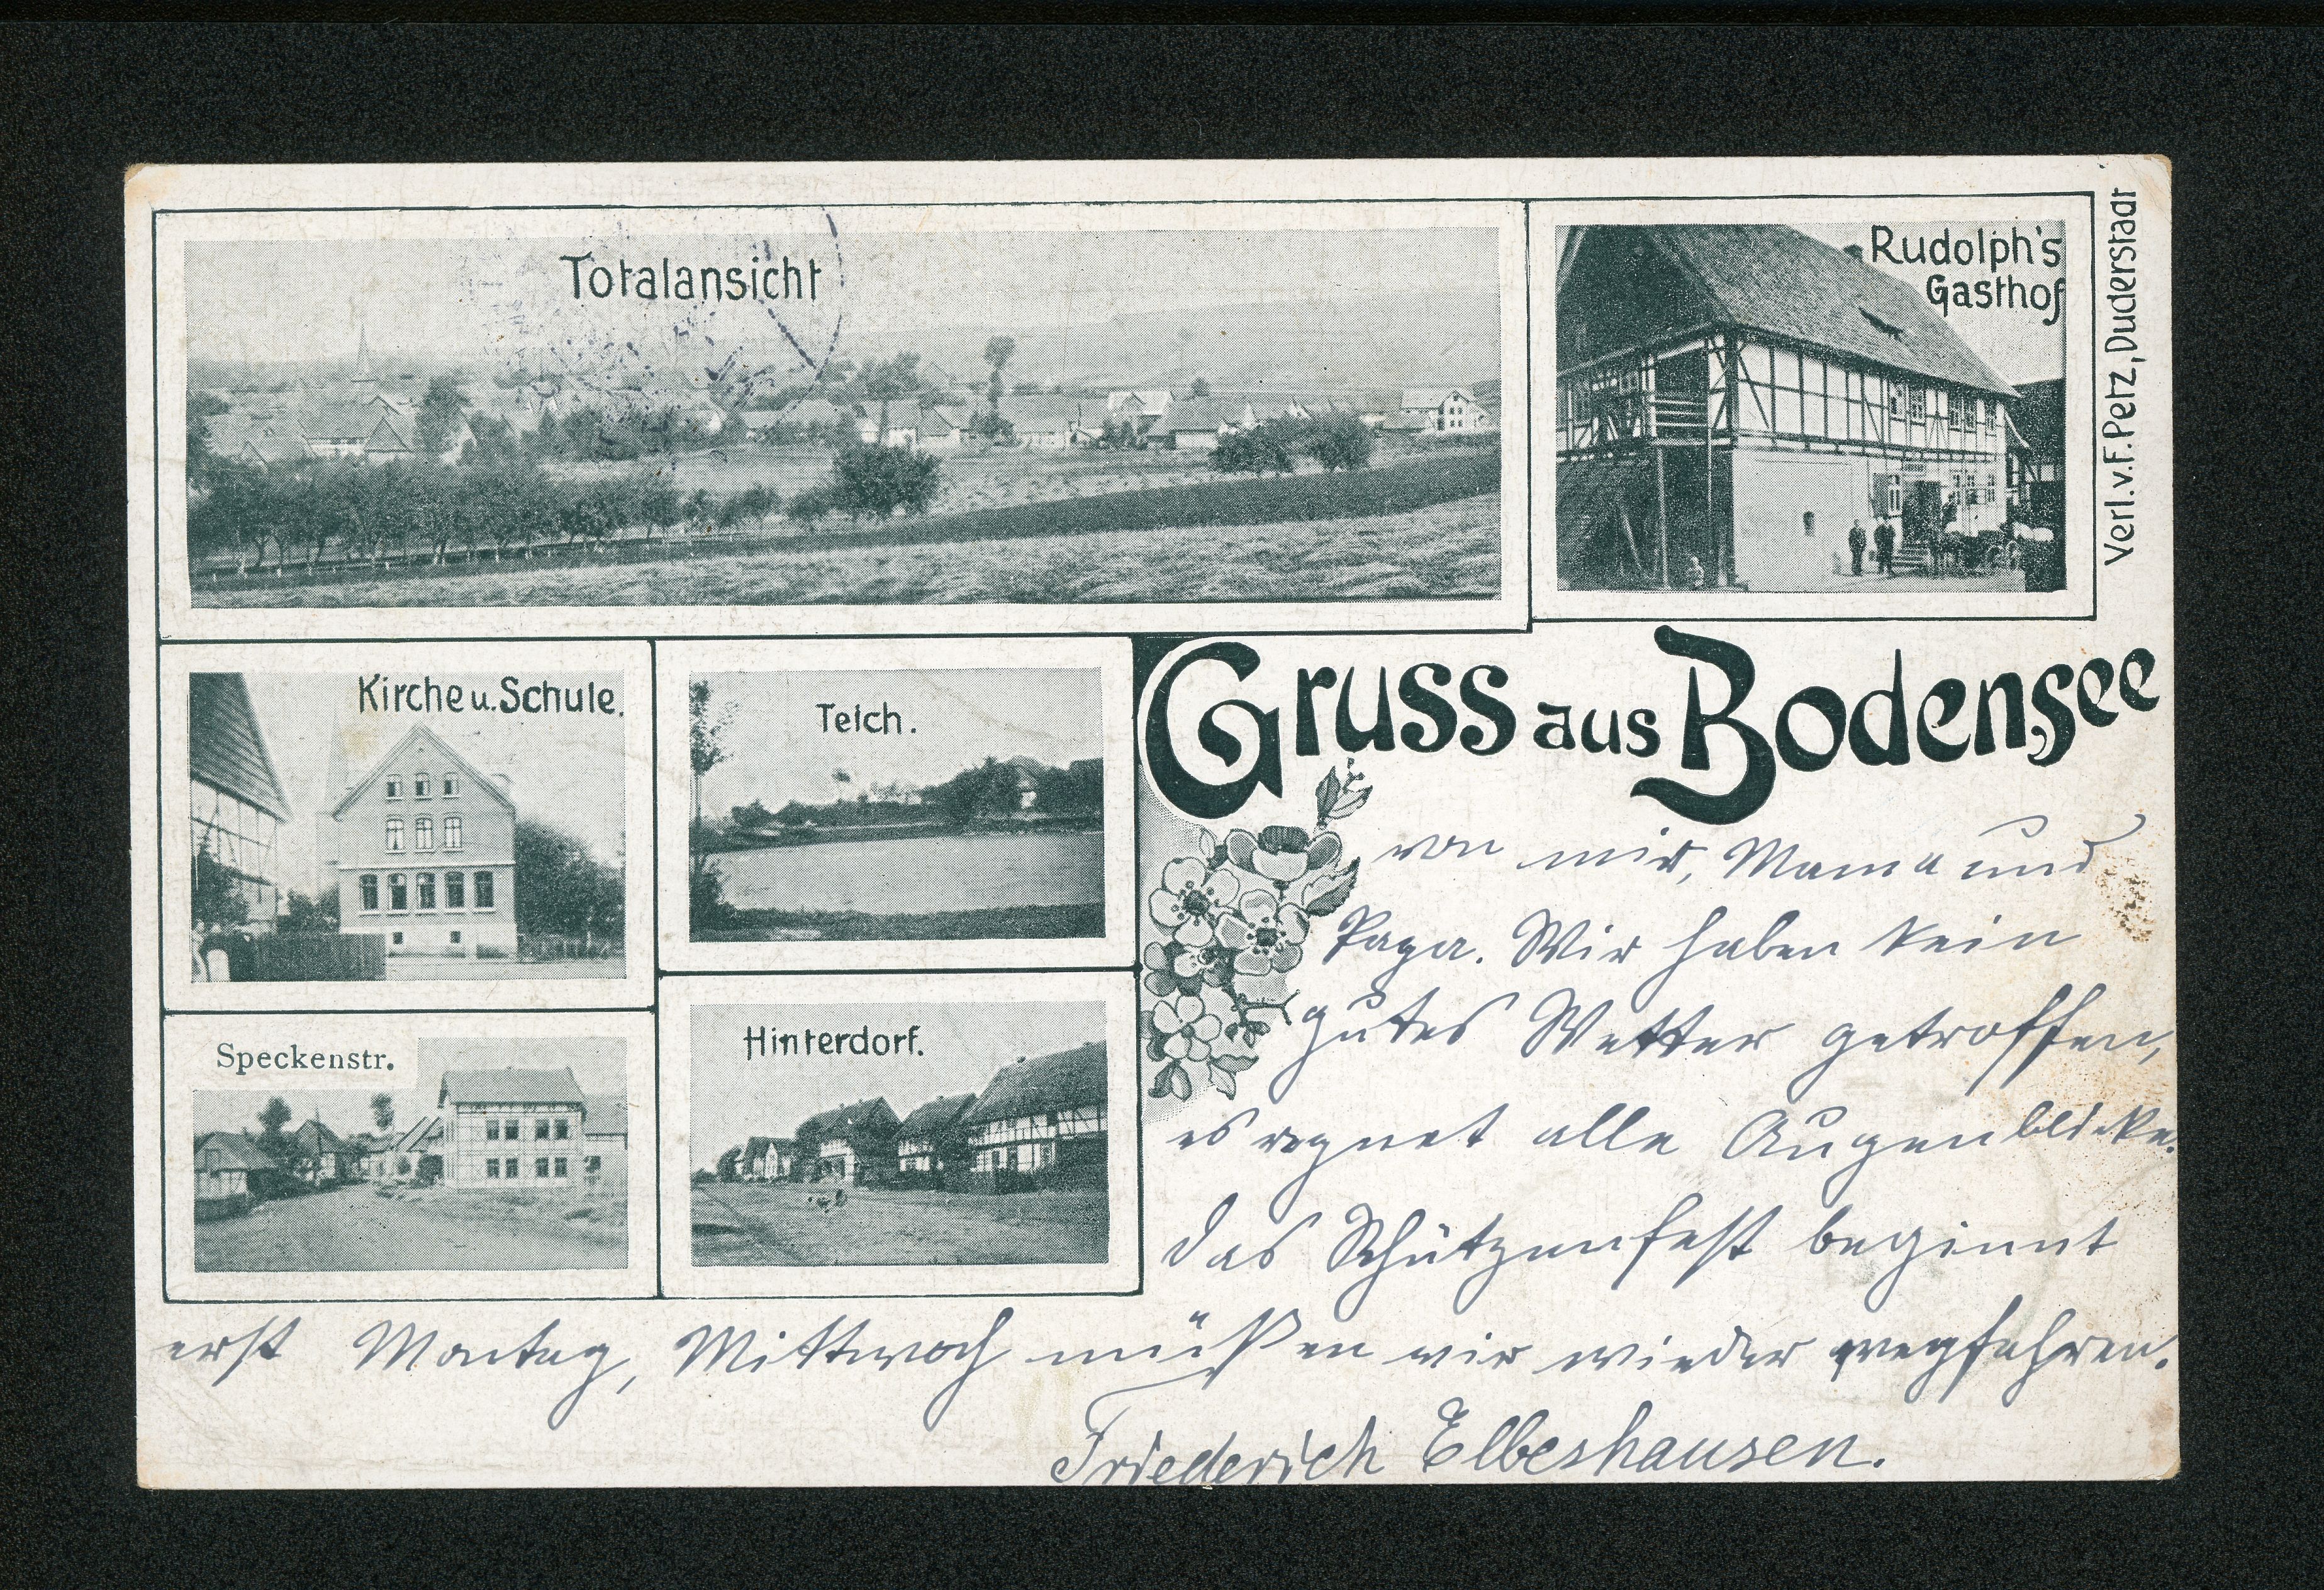 Totalansicht
Rudolph's
Gasthof
Verl. v. F. Petz, Duderstadt
Kirche u. Schule.
Teich.
Gruss aus Bodensee
Speckenstr.
Hinterdorf.
von mir, Mama und
Papa. Wir haben kein
gutes Wetter getroffen,
es regnet alle Augenblicke.
das Schützenfest beginnt
erst Montag, Mittwoch müßen wir wieder wegfahren.
Friederich Elbeshausen.